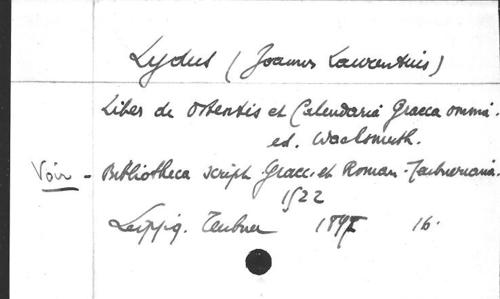 Lydus (Joannes Laurentius)
Liber de Ostentis et Calendaria Graeca omnia.
ed. Wachsmuth.
Voir - Bibliotheca script. Graec. et Roman. Teubneriana.
1522
Leipzig. Teubner 1897 16.